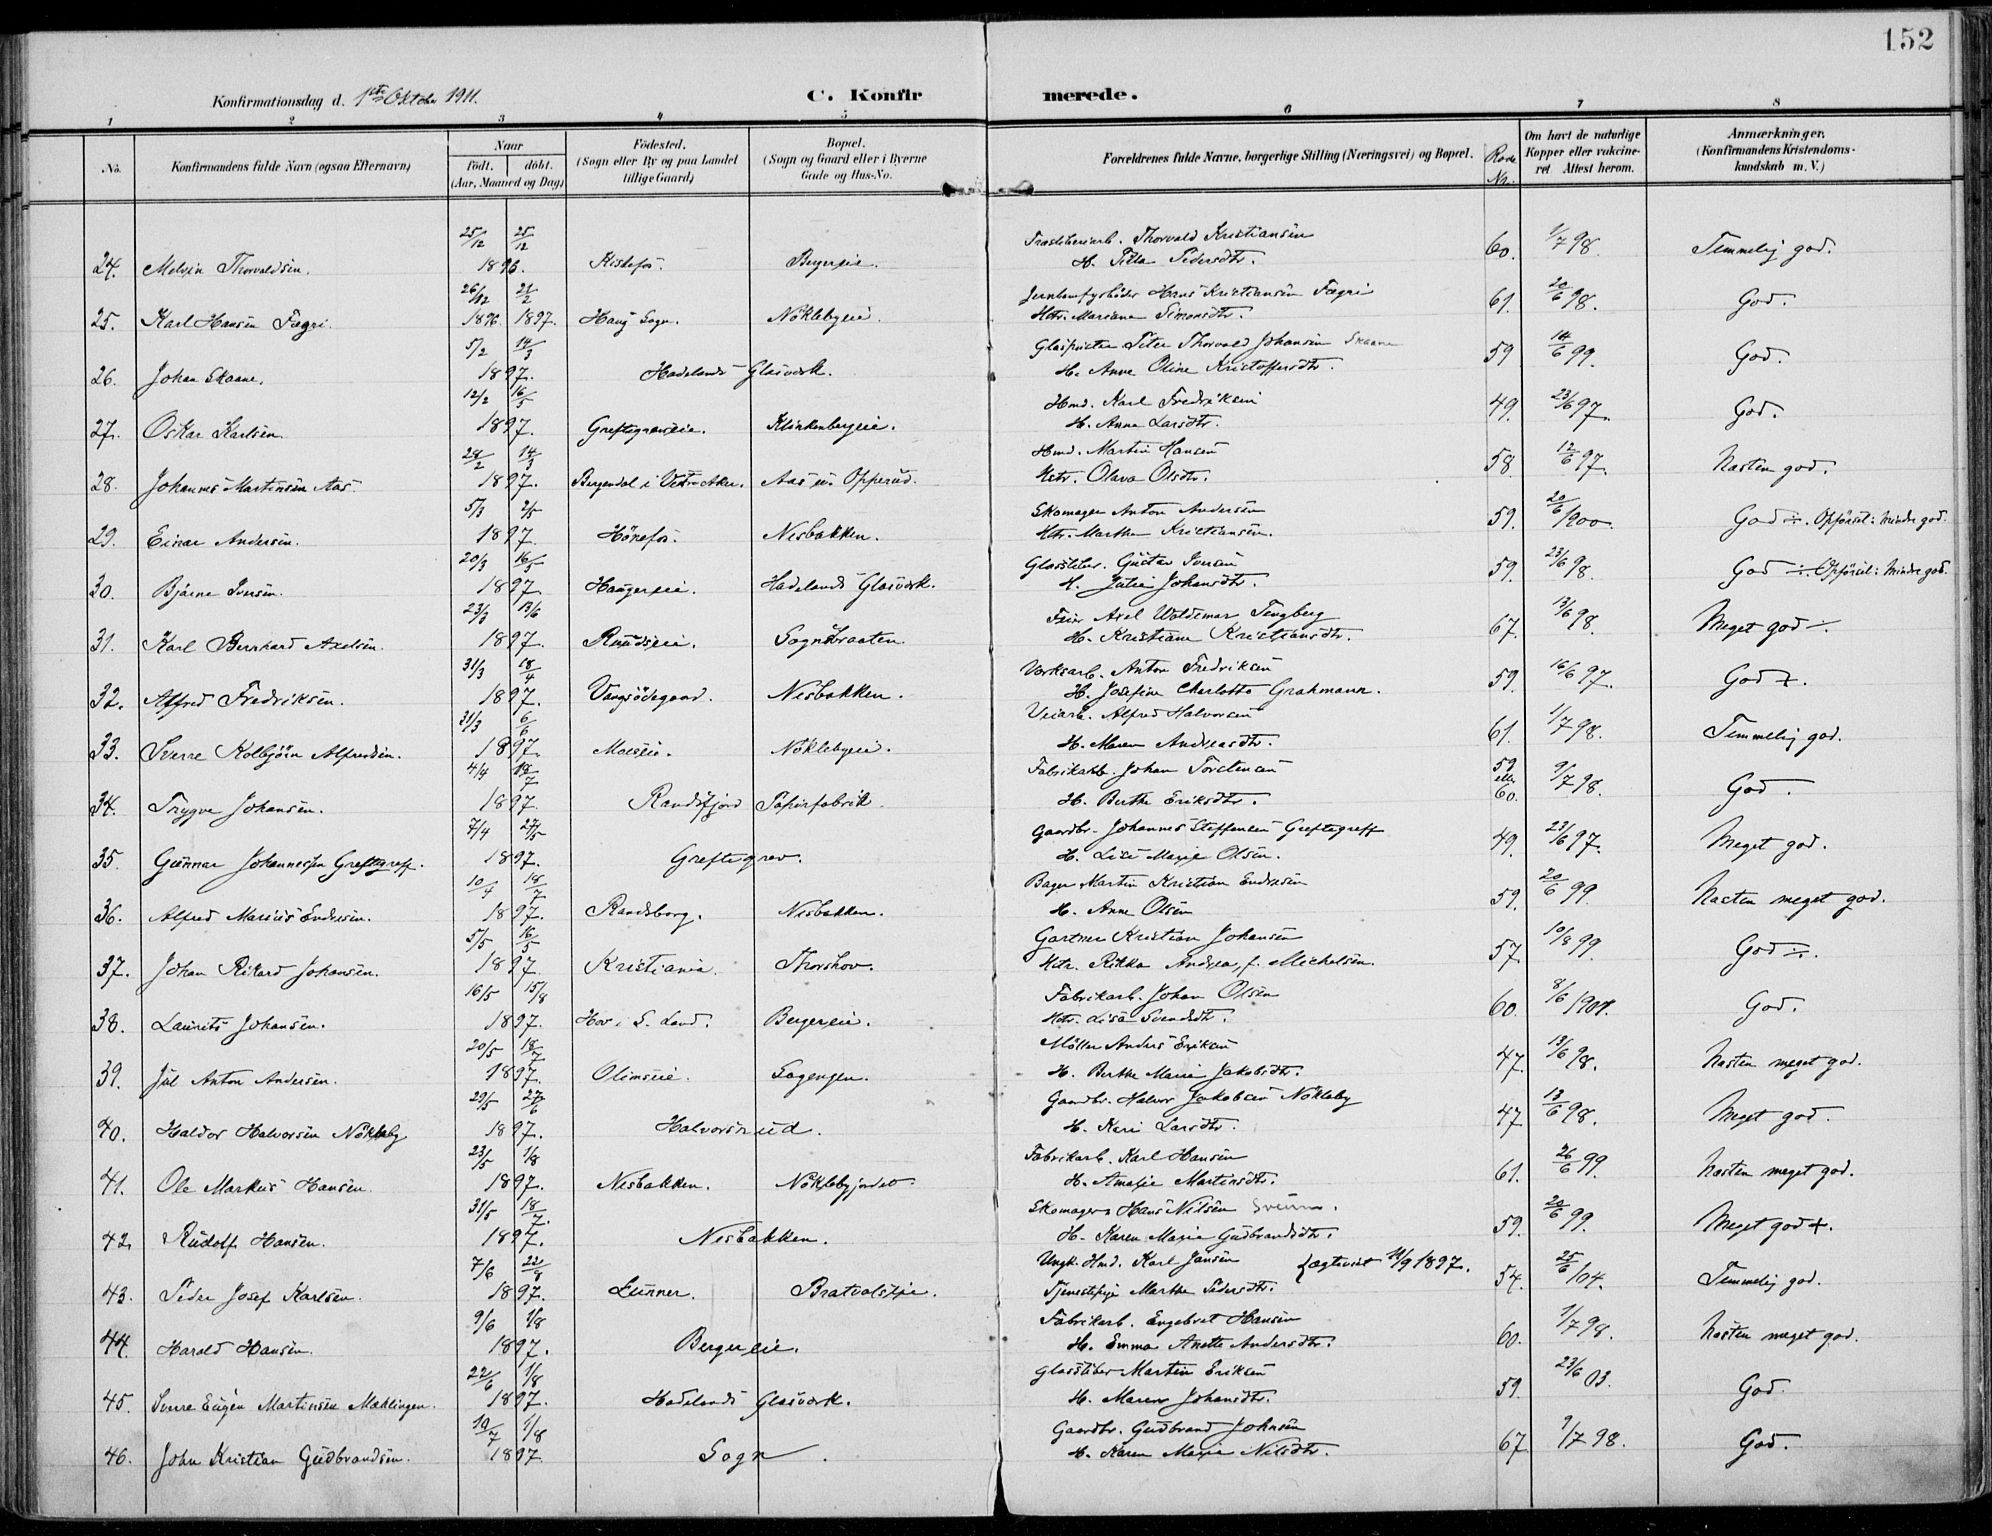 152
Konfirmationsdag d. 1ste Oktober 1911.
C. Konfirmerede.
1 2 3 4 5 6 7 8
No. Konfirmandens fulde Navn (ogsaa Efternavn) Naar født. døbt. (Aar, Maaned og Dag) Fødested. (Sogn eller By og paa Landet tillige Gaard) Bopæl. (Sogn og Gaard eller i Byerne Gade og Hus-No. Forældrenes fulde Navne, borgerlige Stilling (Næringsvei) og Bopæl. Rode Nr. Om havt de naturlige Kopper eller vakcineret. Attest herom. Anmærkninger. (Konfirmandens Kristendomskundskab m. V.)
25/12 25/12 Thorvald Kristiansen
24. Melvin Thorvaldsen. 1896. Kistefos. Bergereie. H. Pedersdtr. 60. 1/7 98. Temmelig god.
26/12 21/2 Hans Kristiansen Fægri
25. Karl Hansen Fægri. 1896. 1897. Haug Sogn. Nöklebyeie. Hstr. Mariane Simonsdtr. 61. 20/6 98. God.
5/2 14/3 Peter Thorvald Johansen Skaane
26. Johan Skaane. 1897. Hadelands Glasværk. H. Anne Oline Kristoffersdtr. 59 14/6 99. God.
12/2 16/5 Hmd. Karl Fredriksen
27. Oskar Karlsen. 1897. Greftegreveie. Klinkenbergeie. H. Anne Larsdtr. 49. 23/6 97. God.
28/2 14/3 Hmd. Martin Hansen
28. Johannes Martinsen Aas. 1897. Bergendal i Vestre Aker. Aas u. Opperud. Hstr. Olava Olsdtr. 58 12/6 97. Næsten god.
5/3 2/5 Skomager Anton Andersen
29. Einar Andersen. 1897. Hönefos. Nesbakken. Hstr. Marthe Kristiansen. 59. 20/6 1900. God ÷. Opförsel: Mindre god.
20/3 16/5 Glassliber. Gustav Iversen
30. Bjarne Iversen. 1897. Haugerseie. Hadelands Glasværk. H. Julie Johansdtr. 59. 23/6 98. God ÷. Opförsel: Mindre god.
23/3 13/6 Feier Axel Woldemar Tengberg
31. Karl Bernhard Axelsen. 1897. Ruudseie. Sognsbraaten. H. Kristiane Kristiansdtr. 67. 13/6 98. Meget god ÷.
31/3 18/4 Verksarb. Anton Fredriksen
32. Alfred Fredriksen. 1897. Vangsödegaard. Nesbakken. H. Josefine Charlotte Grahmann. 59. 16/6 97. God +.
31/3 6/6 Veiarb. Alfred Halvorsen
33. Sverre Kolbjörn Alfredsen. 1897. Moeseie. Nöklebyeie. H. Maren Andreasdtr. 61. 1/7 98. Temmelig god.
4/4 18/7 Fabrikarb. Johan Torstensen
34. Trygve Johansen. 1897. Randsfjord Papirfabrik. H. Berthe Eriksdtr. 59 eller 60. 9/7 98. God.
7/4 27/5 Gaardbr. Johannes Steffensen Greftegreff
35. Gunnar Johannessen Greftegreff. 1897. Greftegrev. H. Lise Marie Olsen. 49. 23/6 97. Meget god.
10/4 18/7 Bager Martin Kristian Endresen
36. Alfred Marius Endresen. 1897. Randsborg. Nesbakken. H. Anne Olsen 59. 20/6 99. Næsten meget god.
5/5 16/5 Gartner Kristian Johansen
37. Johan Rikard Johansen. 1897. Kristiania. Thorshov. Hstr. Rikka Andrea, f. Michelsen. 57. 10/8 99. God ÷.
16/5 15/8 Fabrikarb. Johan Olsen
38. Laurits Johansen. 1897. Hov i S. Land. Bergereie. Hstr. Lisa Svendsdtr. 60. 8/6 1901. God.
20/5 18/7 Möller Anders Eriksen
39. Jul Anton Andersen. 1897. Olimseie. Sagengen. H. Berthe Marie Jakobsdtr. 47. 13/6 98. Næsten meget god.
29/5 27/6 Gaardbr. Halvor Jakobsen Nökleby
40. Haldor Halvorsen Nökleby 1897. Halvorsrud. H. Kari Larsdtr. 47 13/6 98. Meget god.
23/5 1/8 Fabrikarb. Karl Hansen
41. Ole Markus Hansen. 1897. Nesbakken. Nöklebyjordet. H. Amalie Martinsdtr. 61. 26/6 99. Næsten meget god.
31/5 18/7. Skomager Hans Nilsen
42. Rudolf Hansen. 1897. Nesbakken. H. Karen Marie Gudbrandsdtr. 59. 20/6 99. Meget god +.
7/6 22/8 Ungk. Hmd. Karl Jansen {ægteviet 11/9 1897.
43. Peder Josef Karlsen. 1897. Lunner. Tjenestepige Marthe Pedersdtr. 54. 25/6 04. Temmelig god.
9/6 1/8 Fabrikarb. Engebret Hansen
44. Harald Hansen. 1897. Bergereie. H. Emma Anette Andersdtr. 60. 1/7 98. Næsten meget god.
22/6 1/8 Glassliber Martin Eriksen
45. Sverre Eugen Martinsen Mæhlingen. 1897. Hadelands Glasværk. H. Maren Johansdtr. 59. 23/6 03. God.
10/7 1/8 Gaardbr. Gudbrand Johnsen
46. John Kristian Gudbrandsen. 1897. Sogn. H. Karen Marie Nilsdtr. 67. 9/7 98. God.